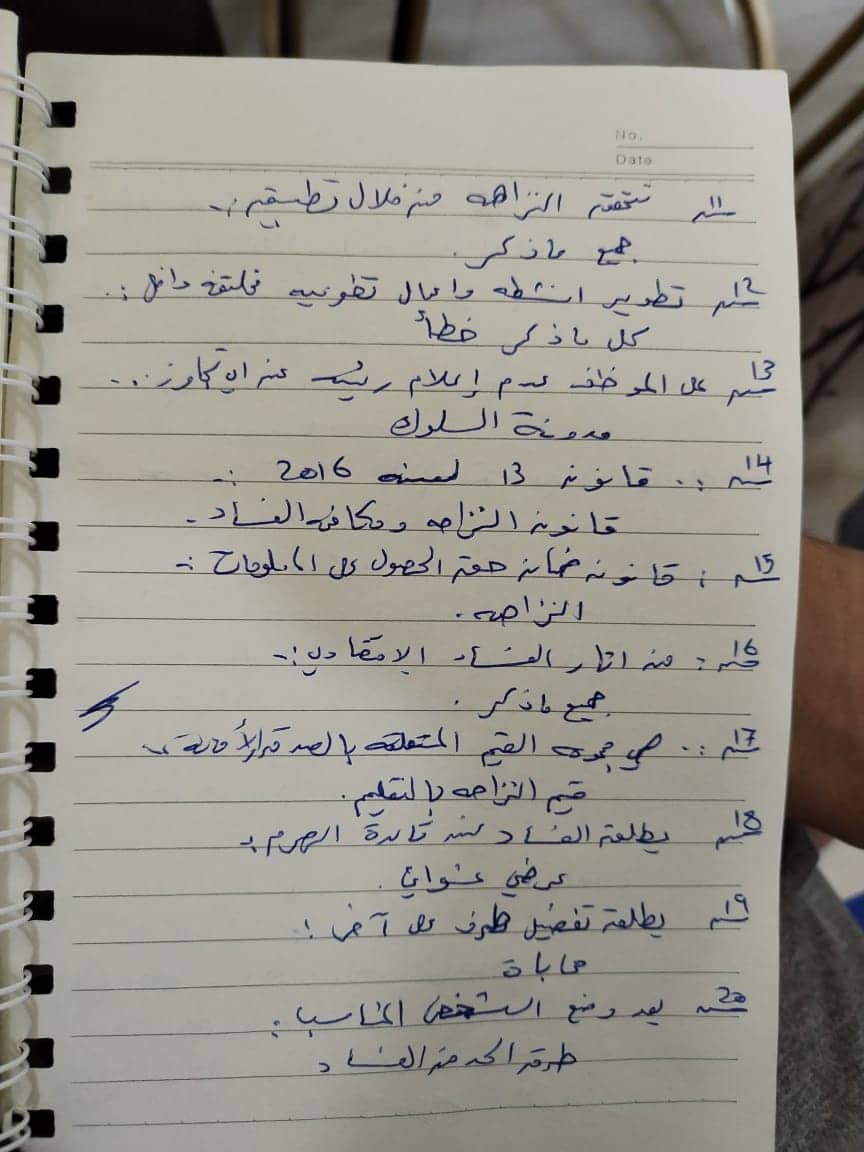 No.
Date
س11 تتحقق النزاهه من خلال تطبيق :-
جميع ماذكر .
س12 تطوير انشطه واعمال تطوعيه مختلفه :.
كل ماذكر خطأ
س13 على الموظف عدم إعلام رئيسه عن اي تجاوز ...
مدونة السلوك
س14 .. قانون 13 لسنه 2016 :-
قانون النزاهه ومكافحه الفساد .
س15 : قانون ضمان حق الحصول على المعلومات :-
النزاهه .
س16 : من اثار الفساد الاقتصادي :-
جميع ماذكر .
س17 .. هي مجموعه القيم المتعلقه بالصدق والأمانة
قيم النزاهه بالتعليم .
س18 يطلق الفساد عند قاعدة الهرم :
عرضي عشوائي .
س19 يطلق تفضيل طرف على آخر :
محاباة
س20 يعد وضع الشخص المناسب :
طرق الحد من الفساد